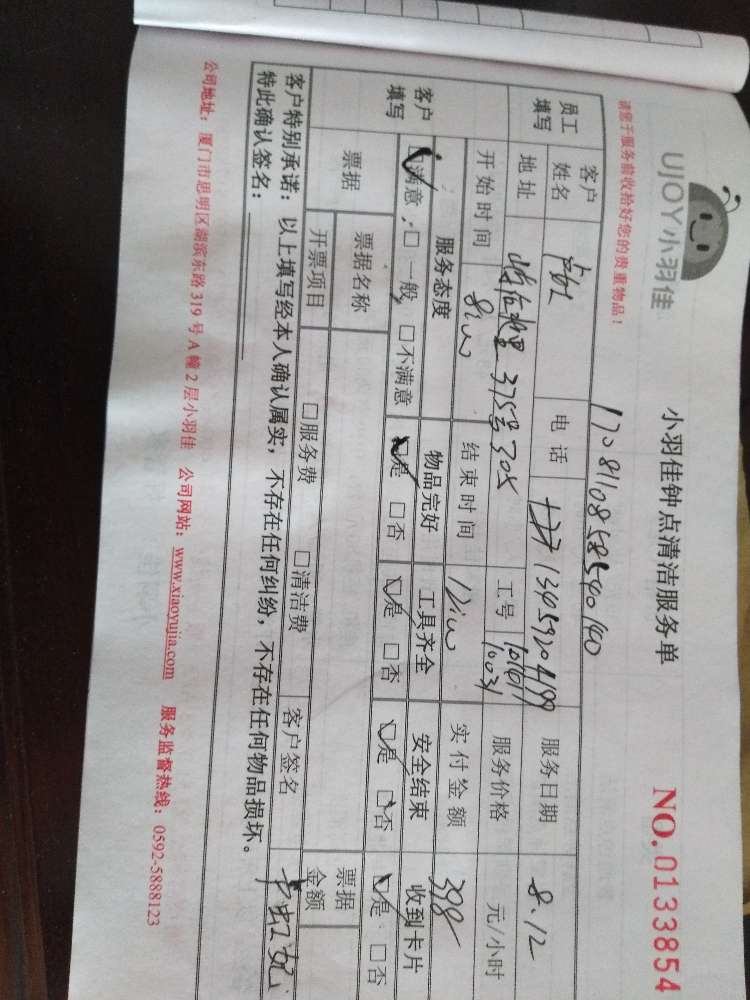 UJOY小羽佳
小羽佳钟点清洁服务单
NO.0133854
请您于服务前收拾好您的贵重物品!
1708110858540140
员工填写
客户姓名
电话
13459204199
服务日期
8.12
地址
375号305
工号
服务价格
元/小时
开始时间
8:00
结束时间
12:00
实付金额
398
客户填写
服务态度
物品完好
工具齐全
安全结束
收到卡片
☑满意 □一般 □不满意
☑是 □否
☑是 □否
☑是 □否
☑是 □否
票据
票据名称
开票项目
□服务费
□清洁费
客户签名
票据金额
客户特别承诺:以上填写经本人确认属实,不存在任何纠纷,不存在任何物品损坏。
特此确认签名:
公司地址:厦门市思明区湖滨东路319号A幢2层小羽佳 公司网站:www.xiaoyujia.com 服务监督热线:0592-5888123